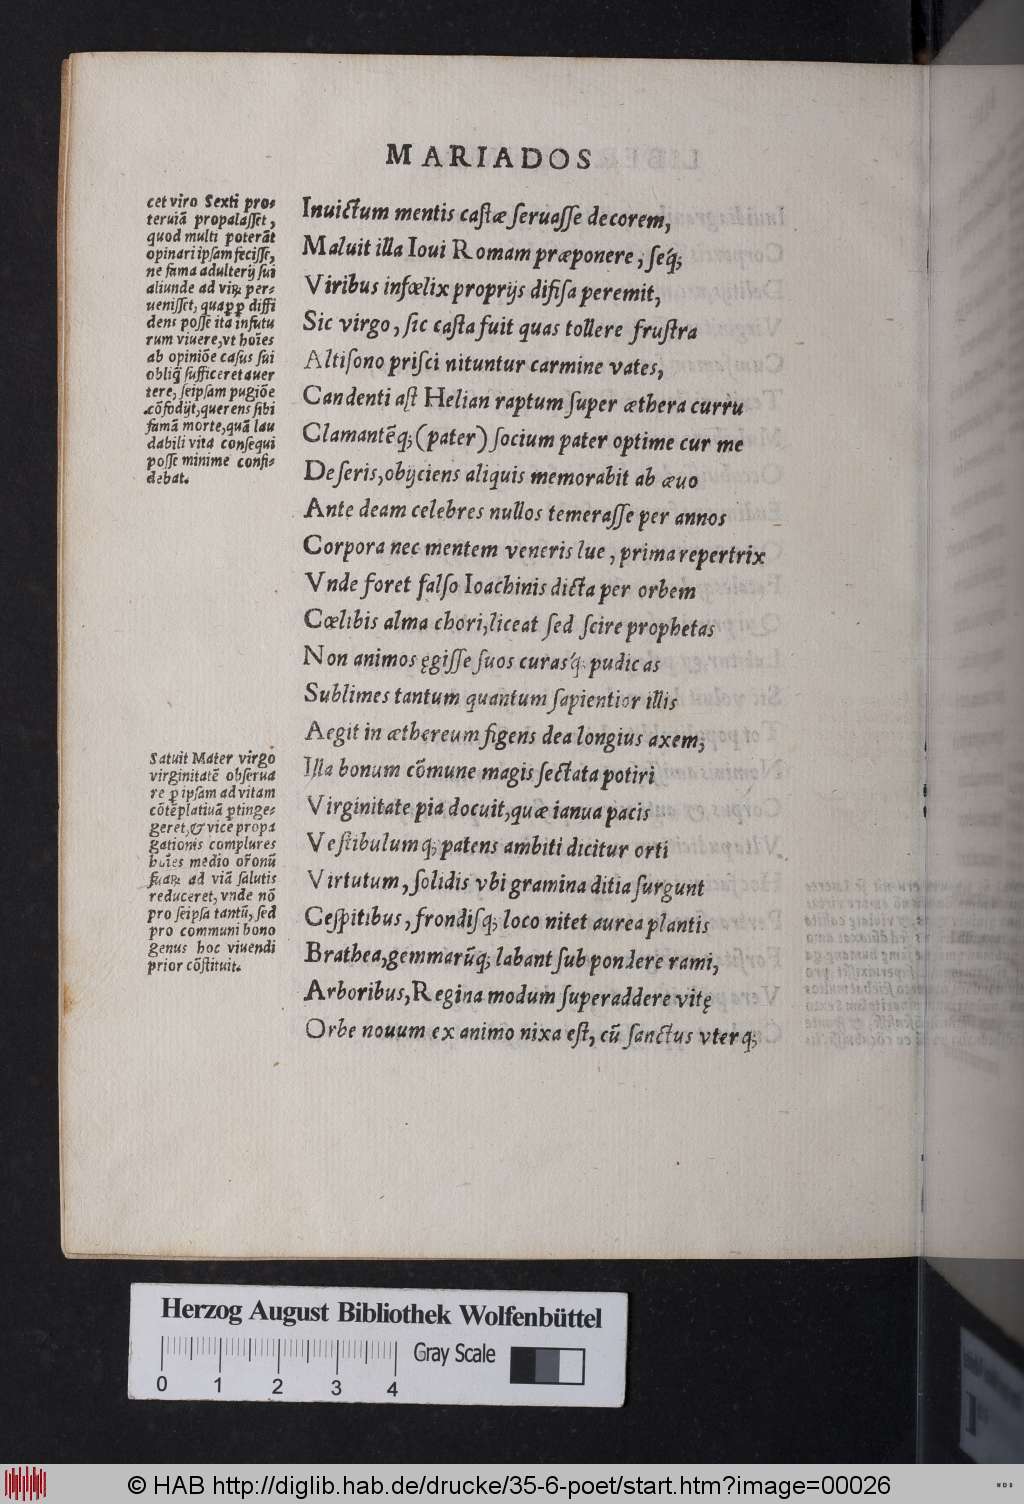 MARIADOS
cet viro Sexti pro=
teruiā propalaſſet,
quod multi poterāt
opinari ipſam feciſſe,
ne fama adulterij ſui
aliunde ad viꝝ per=
ueniſſet, quaꝓꝓ diffi
dens poſſe ita infutu
rum viuere, vt hoīes
ab opiniōe caſus ſui
obliq̃ ſufficeret auer
tere, ſeipſam pugiōe
cōfodijt, querens ſibi
famā morte, quā lau
dabili vita conſequi
poſſe minime confi=
debat.
Inuictum mentis caſtæ ſeruaſſe decorem,
Maluit illa Ioui Romam præponere, ſeq́;
Viribus infœlix proprijs difiſa peremit,
Sic virgo, ſic caſta fuit quas tollere fruſtra
Altiſono priſci nituntur carmine vates,
Candenti aſt Helian raptum ſuper æthera curru
Clamantēq; (pater) ſocium pater optime cur me
Deſeris, obijciens aliquis memorabit ab æuo
Ante deam celebres nullos temeraſſe per annos
Corpora nec mentem veneris lue, prima repertrix
Vnde foret falſo Ioachinis dicta per orbem
Cœlibis alma chori, liceat ſed ſcire prophetas
Non animos ęgiſſe ſuos curasq́; pudicas
Sublimes tantum quantum ſapientior illis
Aegit in æthereum figens dea longius axem;
Iſla bonum cōmune magis ſectata potiri
Virginitate pia docuit, quæ ianua pacis
Veſtibulumq; patens ambiti dicitur orti
Virtutum, ſolidis vbi gramina ditia ſurgunt
Ceſpitibus, frondiſq; loco nitet aurea plantis
Brathea, gemmarūq; labant ſub pondere rami,
Arboribus, Regina modum ſuperaddere vitę
Orbe nouum ex animo nixa eſt, cū ſanctus vterq;
Satuit Mater virgo
virginitatē obſerua
re ꝑ ipſam ad vitam
cōtēplatiuā ꝑtinge=
geret, & vice propa
gationis complures
hoīes medio or̄onū
ſuaꝝ ad viā ſalutis
reduceret, vnde nō
pro ſeipſa tantū, ſed
pro communi bono
genus hoc viuendi
prior cōſtituit.
Herzog August Bibliothek Wolfenbüttel
Gray Scale
0 1 2 3 4
© HAB http://diglib.hab.de/drucke/35-6-poet/start.htm?image=00026